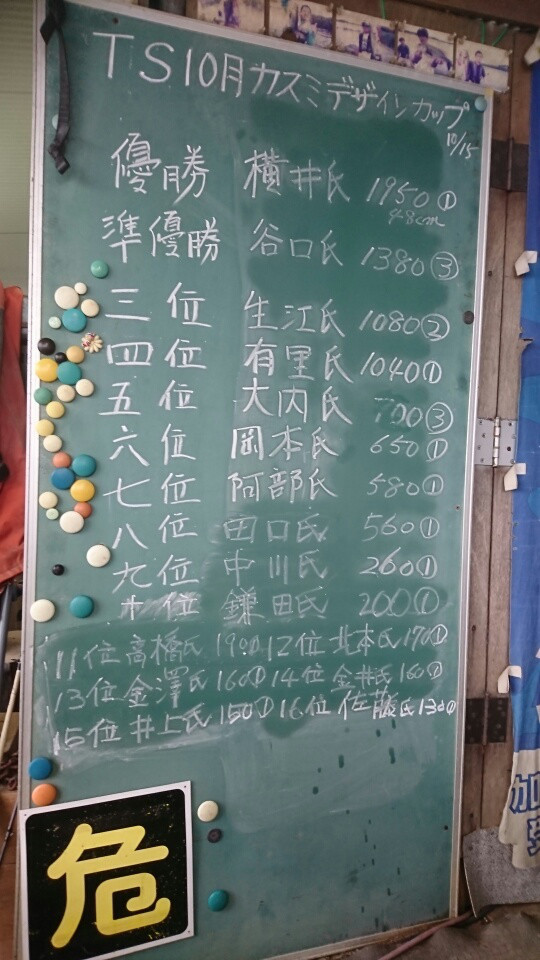 TS10月カスミデザインカップ
10/15
優勝 横井氏 1950①
48cm
準優勝 谷口氏 1380③
三位 生江氏 1080②
四位 有里氏 1040①
五位 大内氏 700③
六位 岡本氏 650①
七位 阿部氏 580①
八位 田口氏 560①
九位 中川氏 260①
十位 鎌田氏 200①
11位高橋氏 190① 12位 北本氏 170①
13位金澤氏 160① 14位 金井氏 160①
15位井上氏 150① 16位 佐藤氏 130①
危